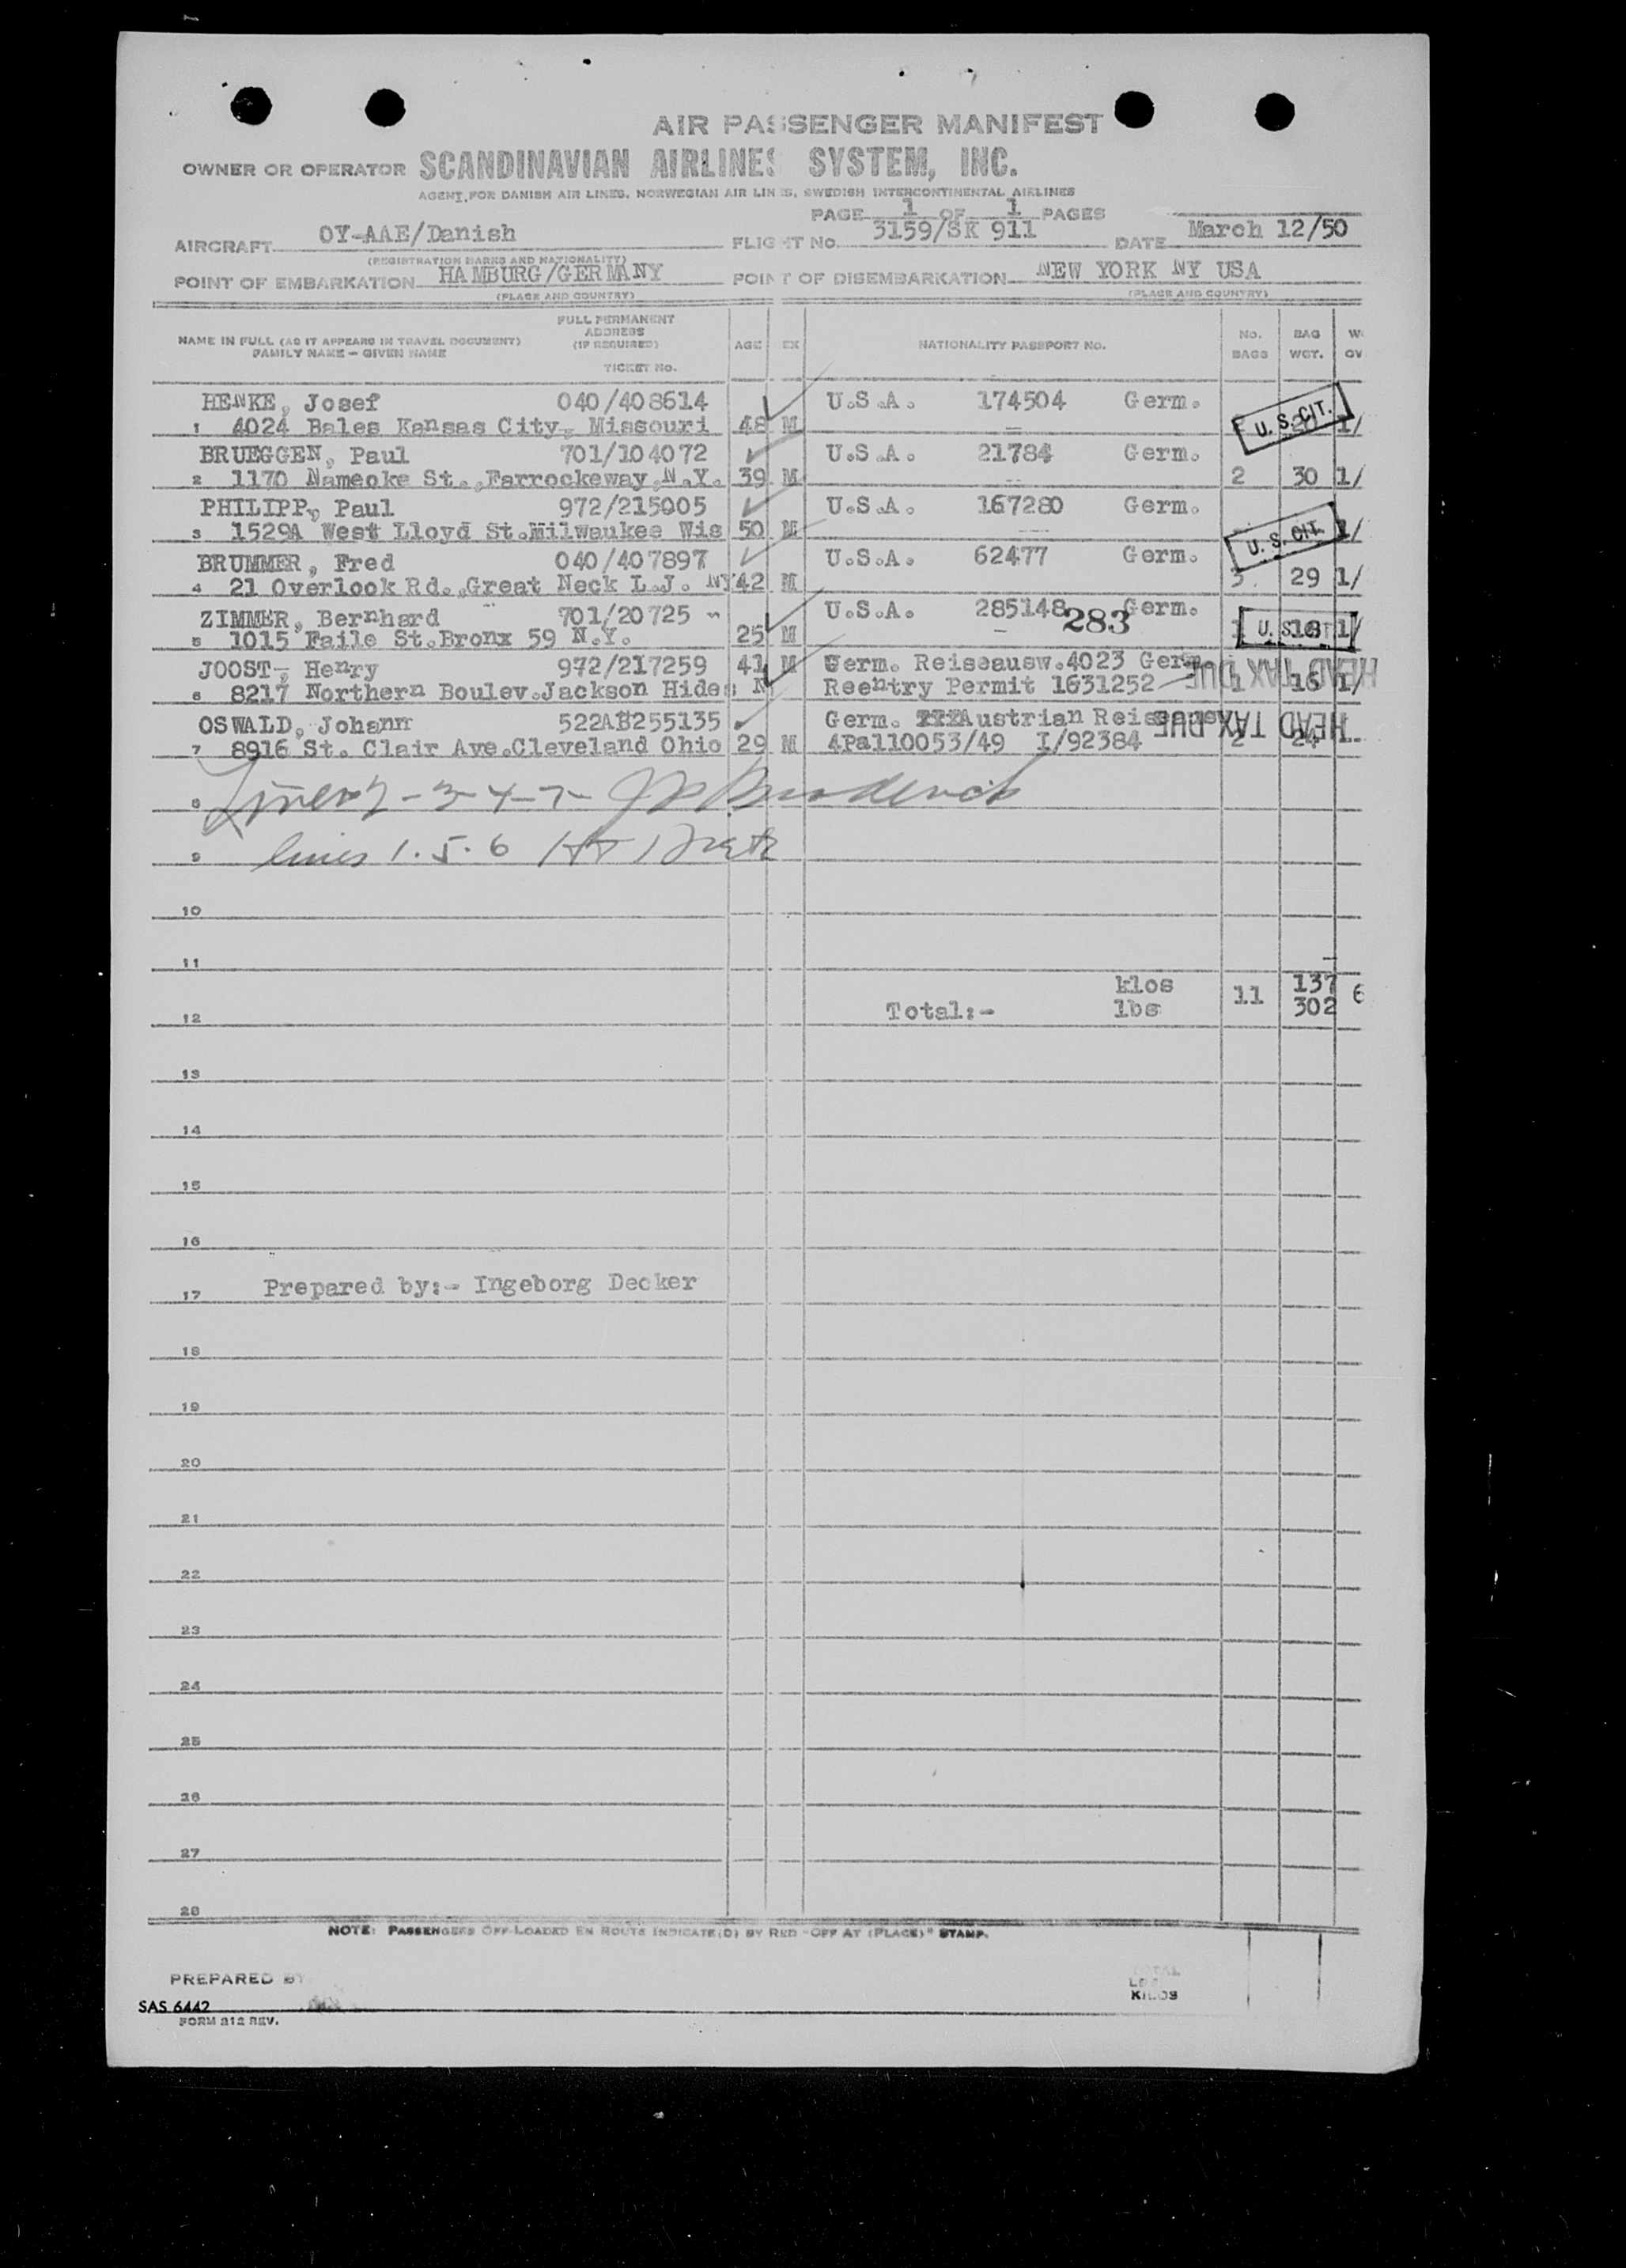 AIR PASSENGER MANIFEST
OWNER OR OPERATOR SCANDINAVIAN AIRLINES SYSTEM, INC.
AGENT FOR DANISH AIR LINES, NORWEGIAN AIR LINES, SWEDISH INTERCONTINENTAL AIRLINES
PAGE 1 OF 1 PAGES
AIRCRAFT OY-AAE/Danish FLIGHT No. 3159/SK 911 DATE March 12/50
(REGISTRATION MARKS AND NATIONALITY)
POINT OF EMBARKATION HAMBURG/GERMANY POINT OF DISEMBARKATION NEW YORK NY USA
(PLACE AND COUNTRY) (PLACE AND COUNTRY)
NAME IN FULL (AS IT APPEARS IN TRAVEL DOCUMENT) FAMILY NAME - GIVEN NAME
FULL PERMANENT ADDRESS (IF REQUIRED) TICKET No.
AGE EX NATIONALITY PASSPORT No. No. BAGS BAG WGT. W OV
HENKE, Josef 040/408614 U.S.A. 174504 Germ.
1 4024 Bales Kansas City, Missouri 48 M U.S. CIT. 1/
BRUEGGEN, Paul 701/104072 U.S.A. 21784 Germ.
2 1170 Nameoke St.,Farrockeway,N.Y. 39 M 2 30 1/
PHILIPP, Paul 972/215005 U.S.A. 167280 Germ.
3 1529A West Lloyd St.Milwaukee Wis 50 M U.S. CIT. 1/
BRUMMER, Fred 040/407897 U.S.A. 62477 Germ.
4 21 Overlook Rd.,Great Neck L.J. NY 42 M 3 29 1/
ZIMMER, Bernhard 701/20725 U.S.A. 285148 283 Germ.
5 1015 Faile St.Bronx 59 N.Y. 25 M 1 U.S. CIT 18 1/
JOOST, Henry 972/217259 41 M Germ. Reiseausw.4023 Germ.
6 8217 Northern Boulev.Jackson Hide: N Reentry Permit 1631252 HEAD TAX DUE 1 16 1/
OSWALD, Johann 522AB255135 Germ. Austrian HEAD TAX DUE
7 8916 St. Clair Ave.Cleveland Ohio 29 M 4Pal10053/49 I/92384 2 24 1
8 Lines 2-3-4-7-
9 lines 1.5.6
10
11
klos 11 137 6
12 Total:- lbs 302
13
14
15
16
17 Prepared by:- Ingeborg Decker
18
19
20
21
22
23
24
25
26
27
28
NOTE: PASSENGERS OFF-LOADED EN ROUTE INDICATE(D) BY RED "OFF AT (PLACE)" STAMP.
PREPARED BY TOTAL
LBS
KILOS
SAS 6442
FORM 212 REV.